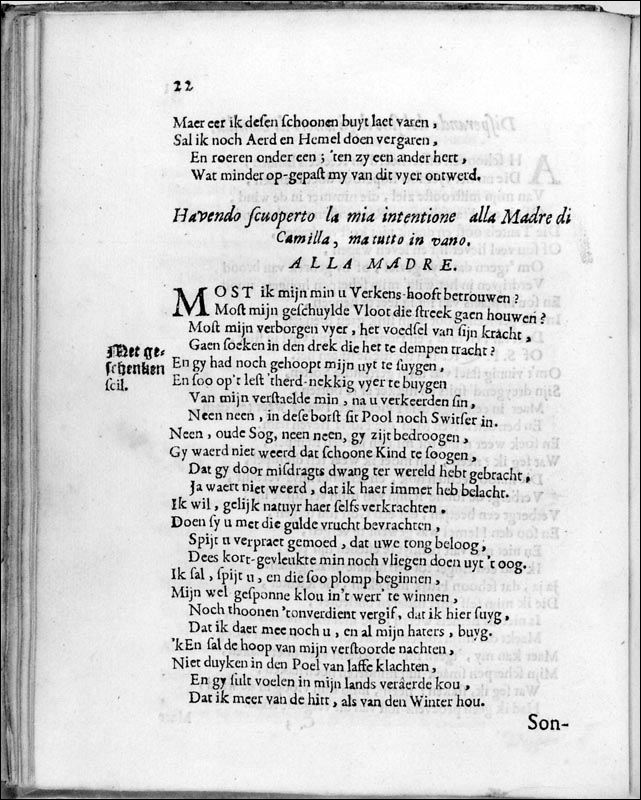 22
Maer eer ik desen schoonen buyt laet varen,
Sal ik noch Aerd en Hemel doen vergaren,
En roeren onder een; 'ten zy een ander hert,
Wat minder op-gepast my van dit vyer ontwerd.
Havendo scuoperto la mia intentione alla Madre di
Camilla, ma tutto in vano.
ALLA MADRE.
MOST ik mijn min u Verkens-hooft betrouwen?
Most mijn geschuylde Vloot die streek gaen houwen?
Most mijn verborgen vyer, het voedsel van sijn kracht,
Gaen soeken in den drek die het te dempen tracht?
Met ge-
schenken
scil.
En gy had noch gehoopt mijn uyt te suygen,
En soo op't lest 'therd-nekkig vyer te buygen
Van mijn verstaelde min, na u verkeerden sin,
Neen neen, in dese borst sit Pool noch Switser in.
Neen, oude Sog, neen neen, gy zijt bedroogen,
Gy waerd niet weerd dat schoone Kind te soogen,
Dat gy door misdragts dwang ter wereld hebt gebracht,
Ja waert niet weerd, dat ik haer immer heb belacht.
Ik wil, gelijk natuyr haer selfs verkrachten,
Doen sy u met die gulde vrucht bevrachten,
Spijt u verpraet gemoed, dat uwe tong beloog,
Dees kort-gevleukte min noch vliegen doen uyt 't oog.
Ik sal, spijt u, en die soo plomp beginnen,
Mijn wel gesponne klou in't werr' te winnen,
Noch thoonen 'tonverdient vergif, dat ik hier suyg,
Dat ik daer mee noch u, en al mijn haters, buyg.
'kEn sal de hoop van mijn verstoorde nachten,
Niet duyken in den Poel van laffe klachten,
En gy sult voelen in mijn lands veraerde kou,
Dat ik meer van de hitt, als van den Winter hou.
Son-